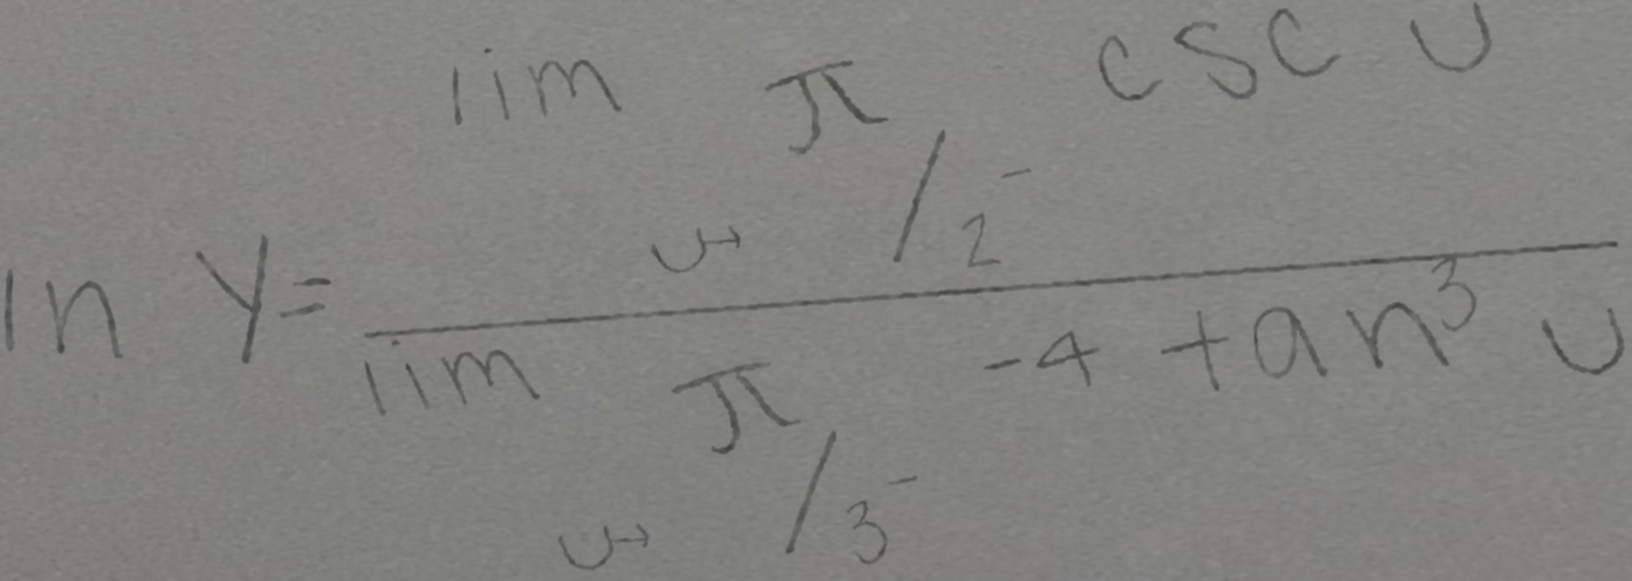 ln y = \frac{\lim_{u \to \pi/2^-} \csc u}{\lim_{u \to \pi/3^-} -4 \tan^3 u}